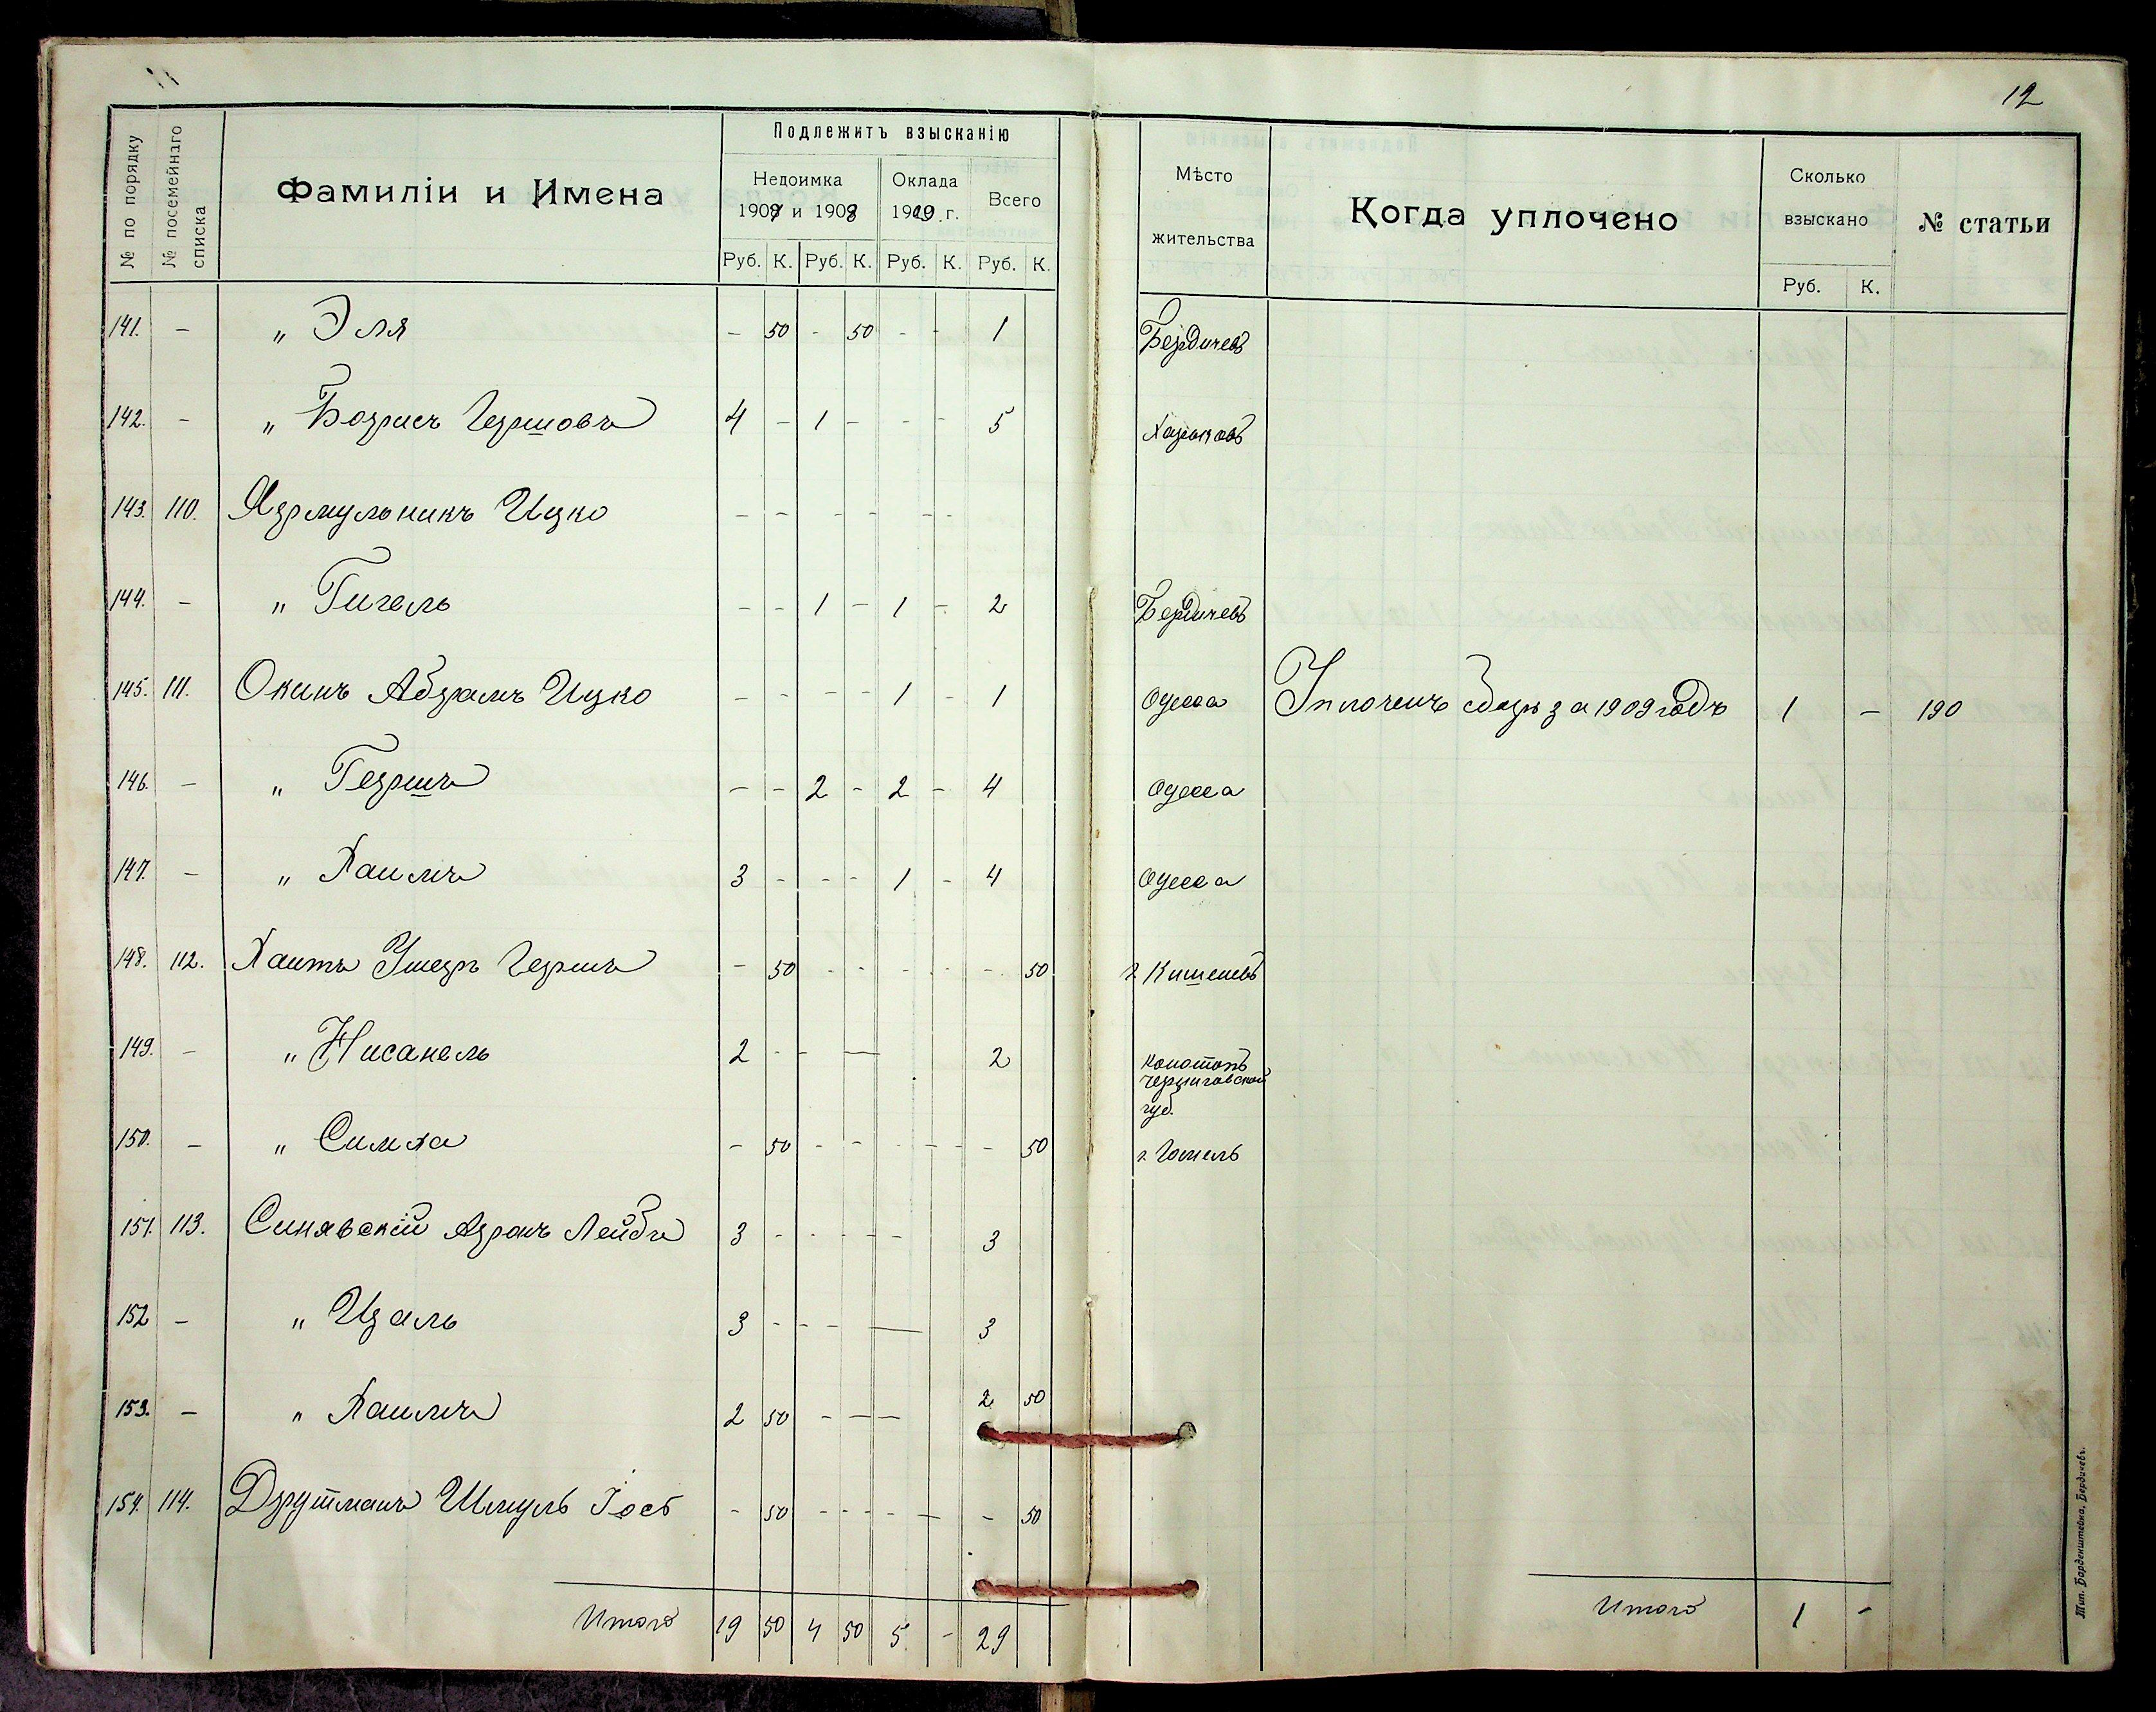 11
12
№ по порядку
№ посемейнаго списка
Фамиліи и Имена
Подлежитъ взысканію
Недоимка
Оклада
Всего
1907 и 1908
1909 г.
Руб. К. Руб. К. Руб. К. Руб. К.
Мѣсто
жительства
Когда уплочено
Сколько
взыскано
Руб. К.
№ статьи
141. - " Эля - 50 - 50 - - 1 Бердичевъ
142. - " Борисъ Гершовъ 4 - 1 - - - 5 Харьковъ
143. 110. Ярмульникъ Ицко - - - - - -
144. - " Гигель - - 1 - 1 - 2 Бердичевъ
145. 111. Окинь Абрамъ Ицко - - - - 1 - 1 Одесса Уплоченъ сборъ за 1909 годъ 1 - 190
146. - " Гершъ - - 2 - 2 - 4 Одесса
147. - " Хаимъ 3 - - - 1 - 4 Одесса
148. 112. Хаитъ Ушеръ Гершъ - 50 - - - - - 50 г. Кишеневъ
149. - " Нисанель 2 - - — 2 Конотопъ
Черниговской
губ.
150. - " Симха - 50 - - - - - 50 г. Гомель
151. 113. Синявскій Аронъ Лейбъ 3 - - - - - 3
152 - " Цаль 3 - - - — 3
153. - " Хаимъ 2 50 - - - 2 50
154. 114. Друтманъ Шмуль Іось - 50 - - - - - 50
Итого 19 50 4 50 5 - 29
Итого 1 -
Тип. Барденштейна, Бердичевъ.